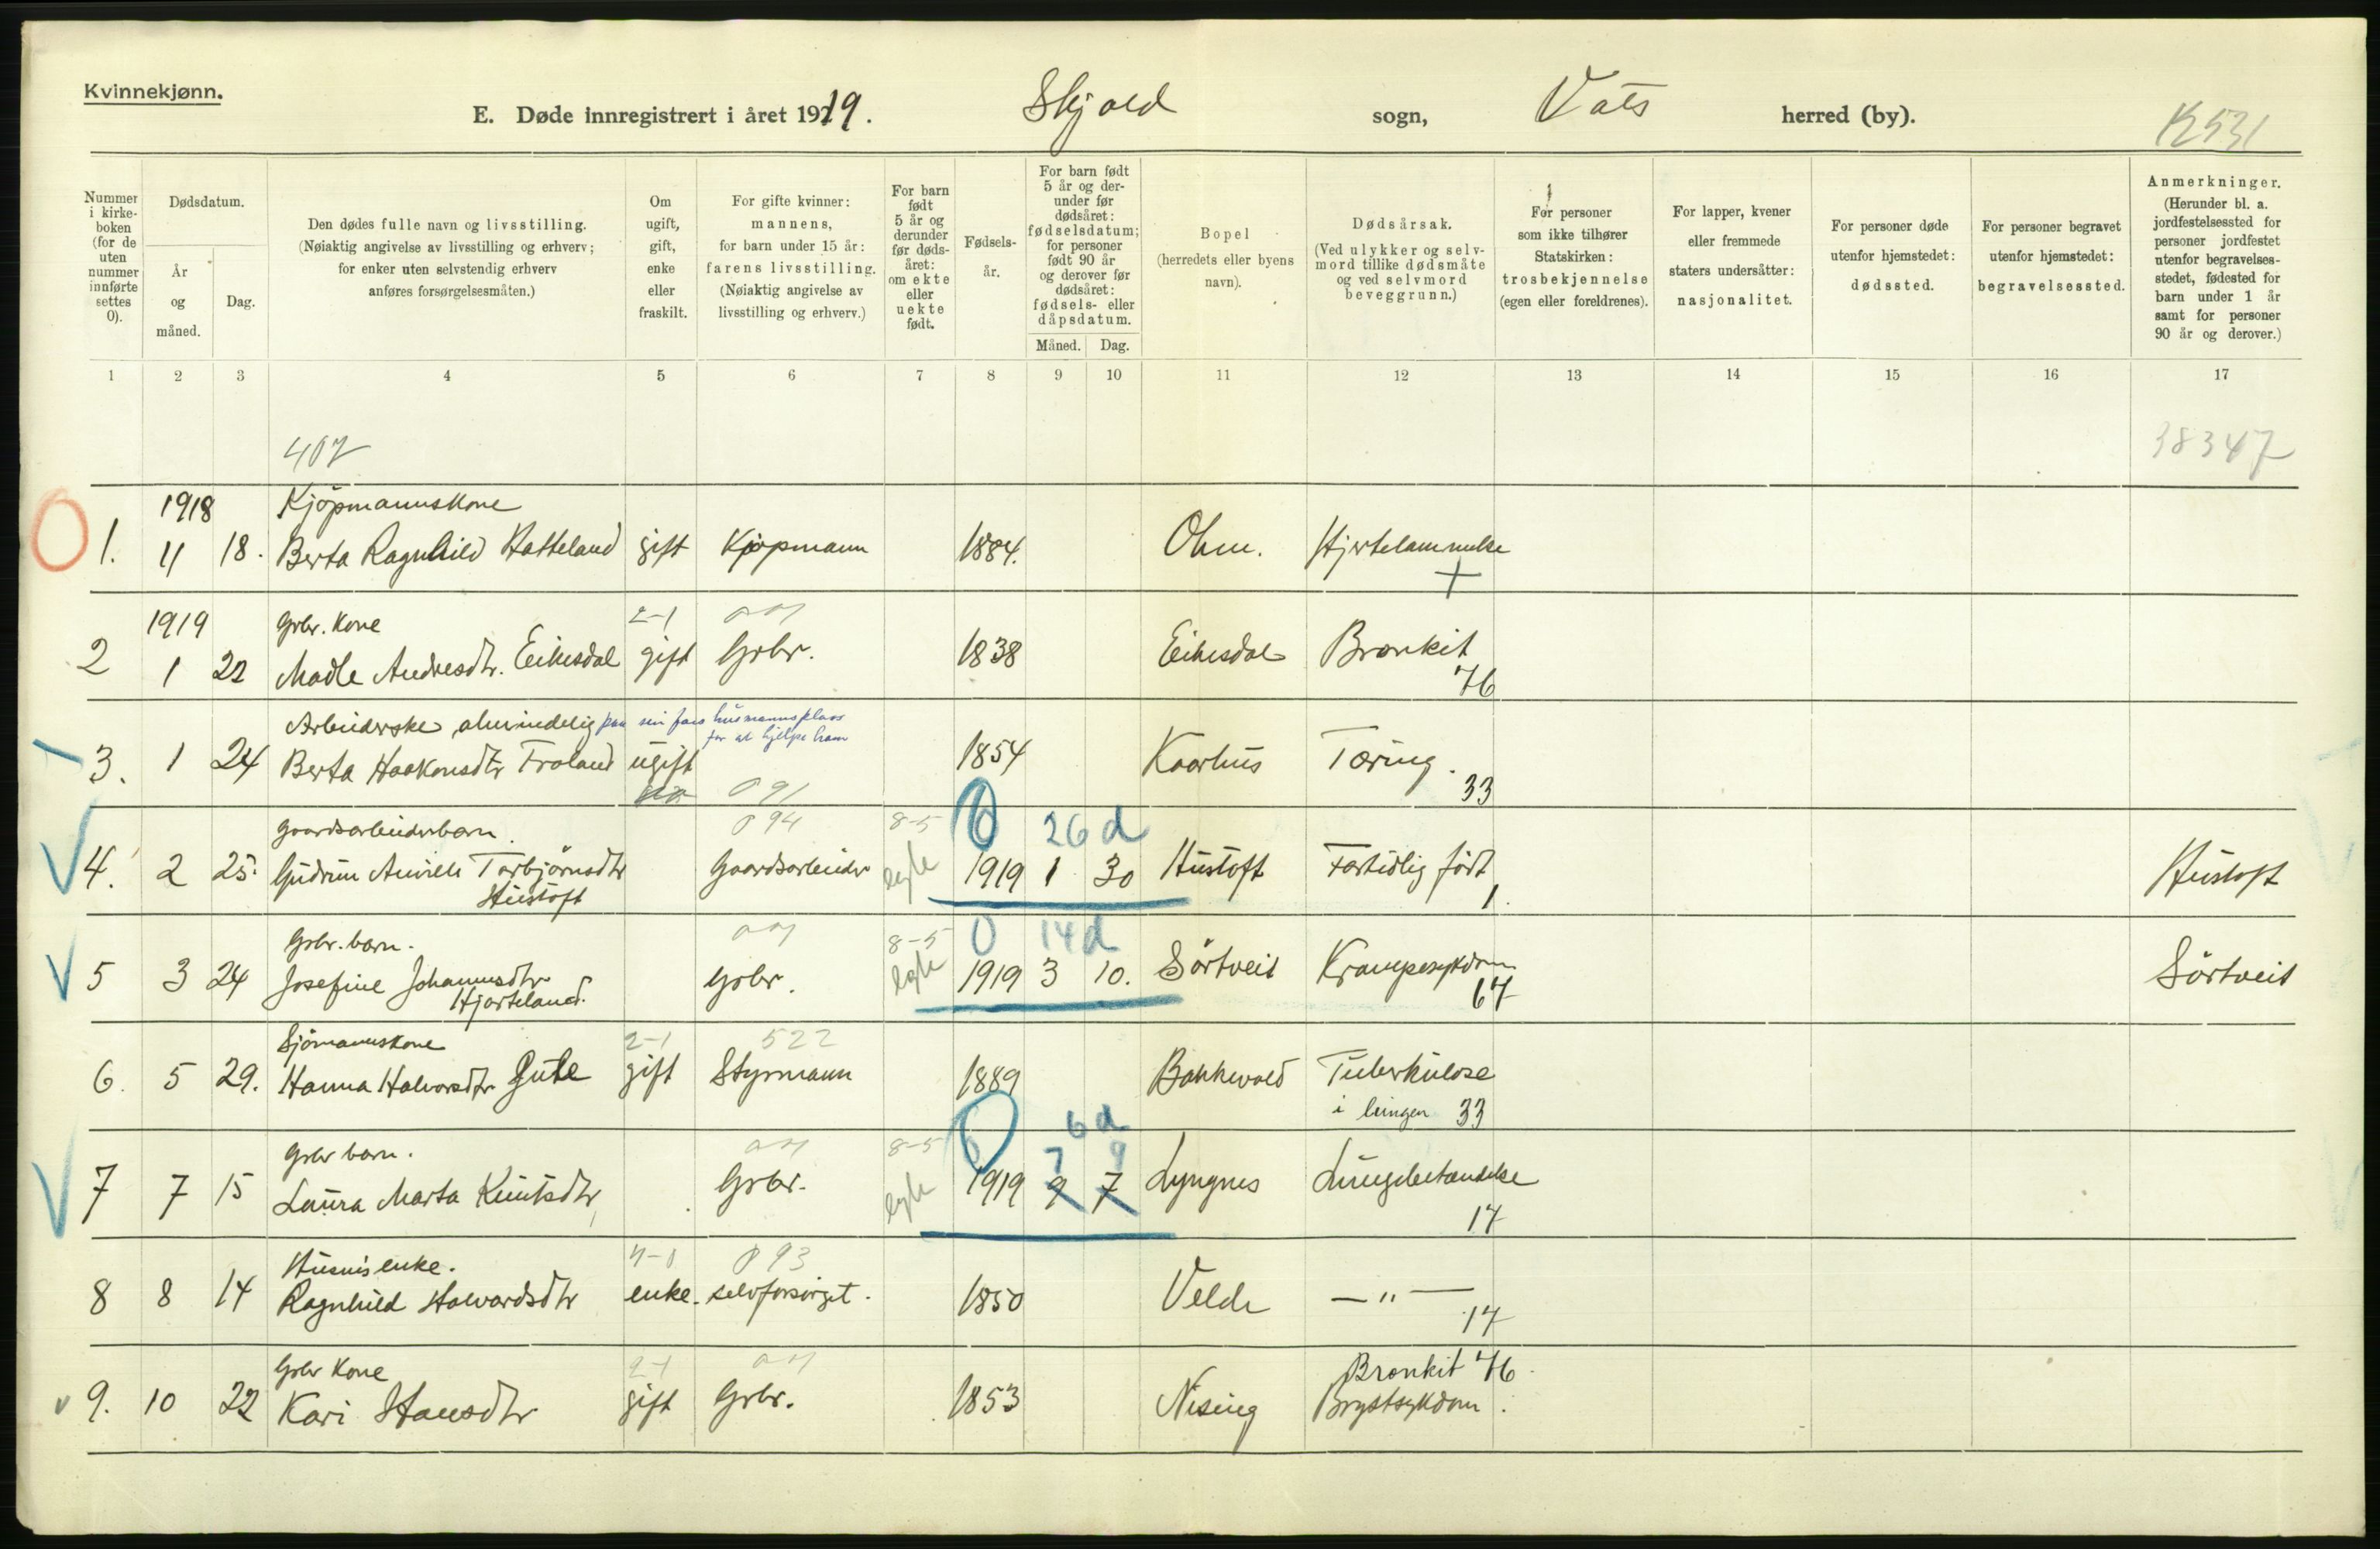 Kvinnekjønn.
E. Døde innregistrert i året 1919. Skjold sogn, Vats herred (by).
K 531
Nummer i kirkeboken (for de uten nummer innførte settes 0).
Dødsdatum.
År og måned.
Dag.
Den dødes fulle navn og livsstilling.
(Nøiaktig angivelse av livsstilling og erhverv;
for enker uten selvstendig erhverv
anføres forsørgelsesmåten.)
Om ugift, gift, enke eller fraskilt.
For gifte kvinner: mannens, for barn under 15 år: farens livsstilling.
(Nøiaktig angivelse av livsstilling og erhverv.)
For barn født 5 år og derunder før dødsåret: om ekte eller uekte født.
Fødselsår.
For barn født 5 år og derunder før dødsåret: fødselsdatum; for personer født 90 år og derover før dødsåret: fødsels- eller dåpsdatum.
Måned. Dag.
Bopel
(herredets eller byens navn).
Dødsårsak.
(Ved ulykker og selvmord tillike dødsmåte og ved selvmord beveggrunn.)
For personer som ikke tilhører Statskirken: trosbekjennelse (egen eller foreldrenes).
For lapper, kvener eller fremmede staters undersåtter: nasjonalitet.
For personer døde utenfor hjemstedet: dødssted.
For personer begravet utenfor hjemstedet: begravelsessted.
Anmerkninger.
(Herunder bl. a. jordfestelsessted for personer jordfestet utenfor begravelsesstedet, fødested for barn under 1 år samt for personer 90 år og derover.)
1 2 3 4 5 6 7 8 9 10 11 12 13 14 15 16 17
407 38347
1918 Kjöpmannskone
1. 11 18. Berta Ragnhild Hatteland gift Kjøpmann 1884. Ohm. Hjertelammelse
+
1919 Grbr. Kone 2-1
2 1 22 Madle Andresdtr. Eikesdal gift Grbr. 1838 Eikesdal Bronkit
76
Arbeiderske, almindelig paa sin fars husmannsplass
for at hjelpe ham
3. 1 24 Berta Haakonsdtr Froland ugift 1854 Kaarhus Tæring.
091 33
Gaardsarbeiderbarn. 094 8-5 0 26 d
4. 2 25. Gudrun Torbjörnsdtr Gaardsarbeider egte 1919 1 30 Hustoft Fortidlig født Hustoft
Hustoft 1.
Grbr. barn. 8-5 0 14 d
5 3 24 Josefine Johannesdtr Grbr. egte 1919 3 10. Sörtveit Krampesykdom Sörtveit
Hjorteland. 67
Sjömannskone 2-1 522
6. 5 29. Hanna Halvorsdtr Gute gift Styrmann 1889 Bakkevold Tuberkulose
i lungen 33
Grbr barn. 8-5 0 6 d
7 9
7 7 15 Laura Marta Knutsdtr Grbr. egte 1919 9 7 Lyngnes Lungebetændelse
17
Husmis enke. 4-1 093
8 8 14 Ragnhild Halvardsdtr enke. selvforsörget. 1850 Velde — " —
17
Grbr Kone 2-1 Bronkit 76
9. 10 22 Kari Hansdtr gift Grbr. 1853 Nising Brystsykdom.